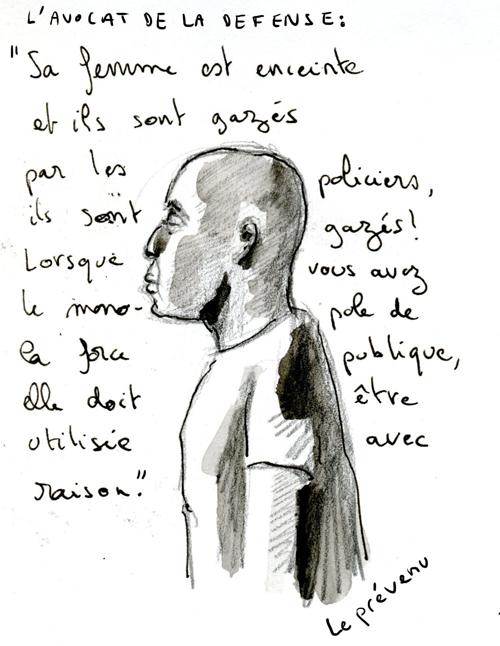 L'AVOCAT DE LA DEFENSE:
"Sa femme est enceinte
et ils sont gazés
par les policiers,
ils sont gazés!
Lorsque vous avez
le mono- pole de
la force publique,
elle doit être
utilisée avec
raison."
Le prévenu